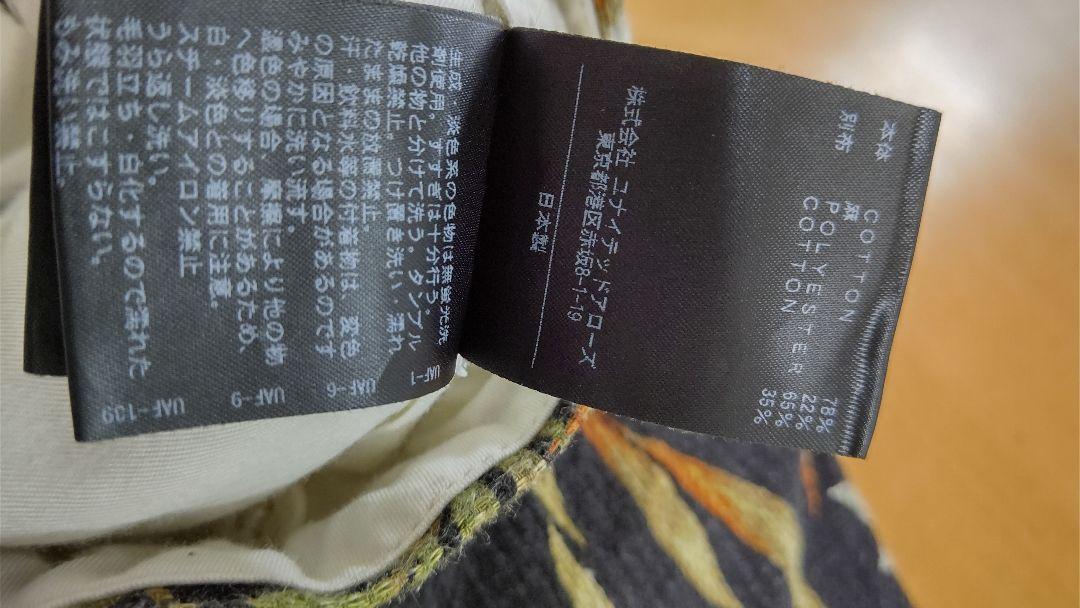 本体 COTTON 78%
麻 22%
別布 POLYESTER 65%
COTTON 35%
株式会社 ユナイテッドアローズ
東京都港区赤坂8-1-19
日本製
生成・淡色系の色物は無蛍光洗
剤使用。すすぎは十分行う。
UAF-1
他の物と分けて洗う。タンブル
乾燥禁止。つけ置き洗い・濡れ
たままの放置禁止。
UAF-6
汗・飲料水等の付着物は、変色
の原因となる場合があるのです
みやかに洗い流す。
UAF-9
濃色の場合、摩擦により他の物
へ色移りすることがあるため、
白・淡色との着用に注意。
スチームアイロン禁止
うら返し洗い。
UAF-139
毛羽立ち・白化するので濡れた
状態ではこすらない。
もみ洗い禁止。